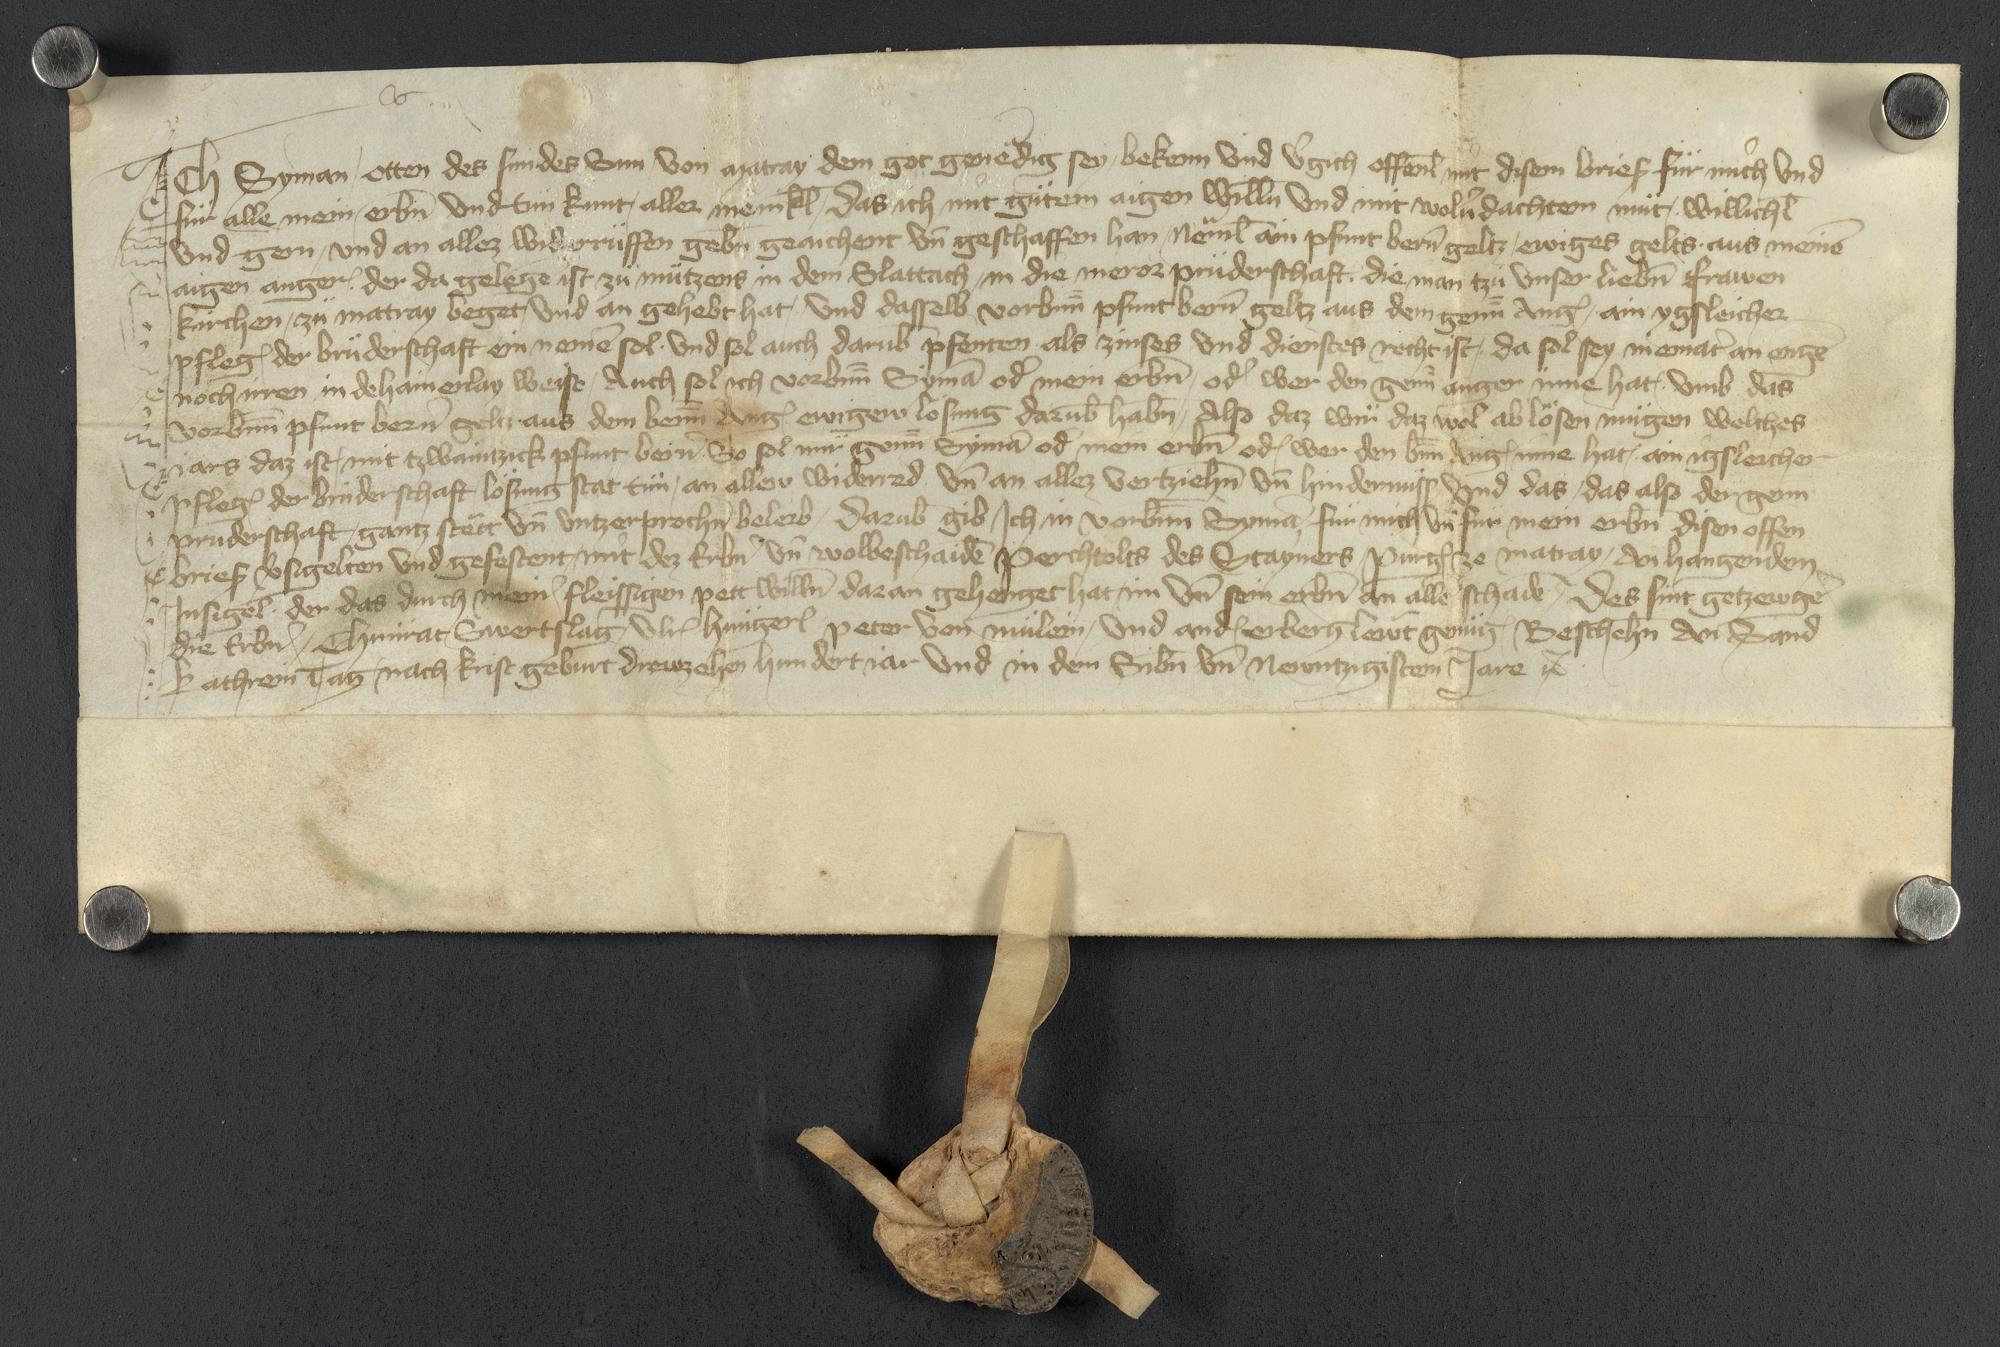 Ich Syman / Otten des smides Sun von Matray dem got genedig sey / bekenn vnd vˀgich offenl mit disem brief für mich vnd
für alle mein erbn̄ vnd tun kunt aller menikl / das ich mit gütem aigen willn̄ vnd mit wolūdachtem müt / willichl
vnd gern / vnd an allez widerrüffen gebn̄ geaichent vn̄ geschaffen han / Neml̄ ain pfunt bern̄ geltz / ewiges gelts aus meinē
aigen anger / der da gelegē ist zü mützens in dem Slattach / in die meror prüderschaft / die man tzü vnser liebn̄ frawen
kirchen / zü matray beget vnd an gehebt hat / vnd dasselb vorbnn̄ pfunt bern̄ geltz aus dem genn̄ Angˀ / ain ygsleicher
pflegˀ der brüderschaft ein nemē sol / vnd sol auch darub̄ pfenten als zinses vnd dienstes recht ist / da sol sey niemat an engē
noch irren in dehainerlay weise / Auch sol ich vorbnn̄ Symā odˀ mein erbn̄ / odˀ wer den genn̄ anger inne hat / vmb das
vorbnn̄ pfunt bern̄ geltz aus dem benn̄ Angˀ ewigew losung darub̄ habn̄ / Also daz wir daz wol ab lösen mügen welches
iars daz ist / mit tzwaintzick pfunt bern̄ / So sol mir genn̄ Symā odˀ mein erbn̄ odˀ wer den bnn̄ Angˀ inne hat / ain igsleicher
pflegˀ der brüderschaft losung stat tün / an allew widerred vn̄ an allez vertziehn̄ vn̄ hindernuss / Vnd das / das also der genn̄
prüderschaft / gantz stett vn̄ vntzerprochn̄ beleib / Darub̄ gib Ich in vorbnn̄ Symā für mich vn̄ für mein erbn̄ disen offen
brief vˀsigelten vnd gefestent / mit dez Erbn̄ vn̄ wolbeschaidē Perchtolts des Stayners Purgˀ ze matray / An hangendem
Insigel / der das durch meinˀ fleissigen pett willn̄ daran gehenget hat im vn̄ sein erbn̄ an alle schadē / Des sint getzewgē
die Erbnˀ / Chunrat Swertslag / Vlrˀ hüngerl̄ Peter von mülein / vnd andˀ erberg lewt genügˀ Beschehn̄ An Sand
kathrein Tag nach krist geburt drewzehen hundert iar vnd in dem Sibn̄ vn̄ Newntzigistem Jare